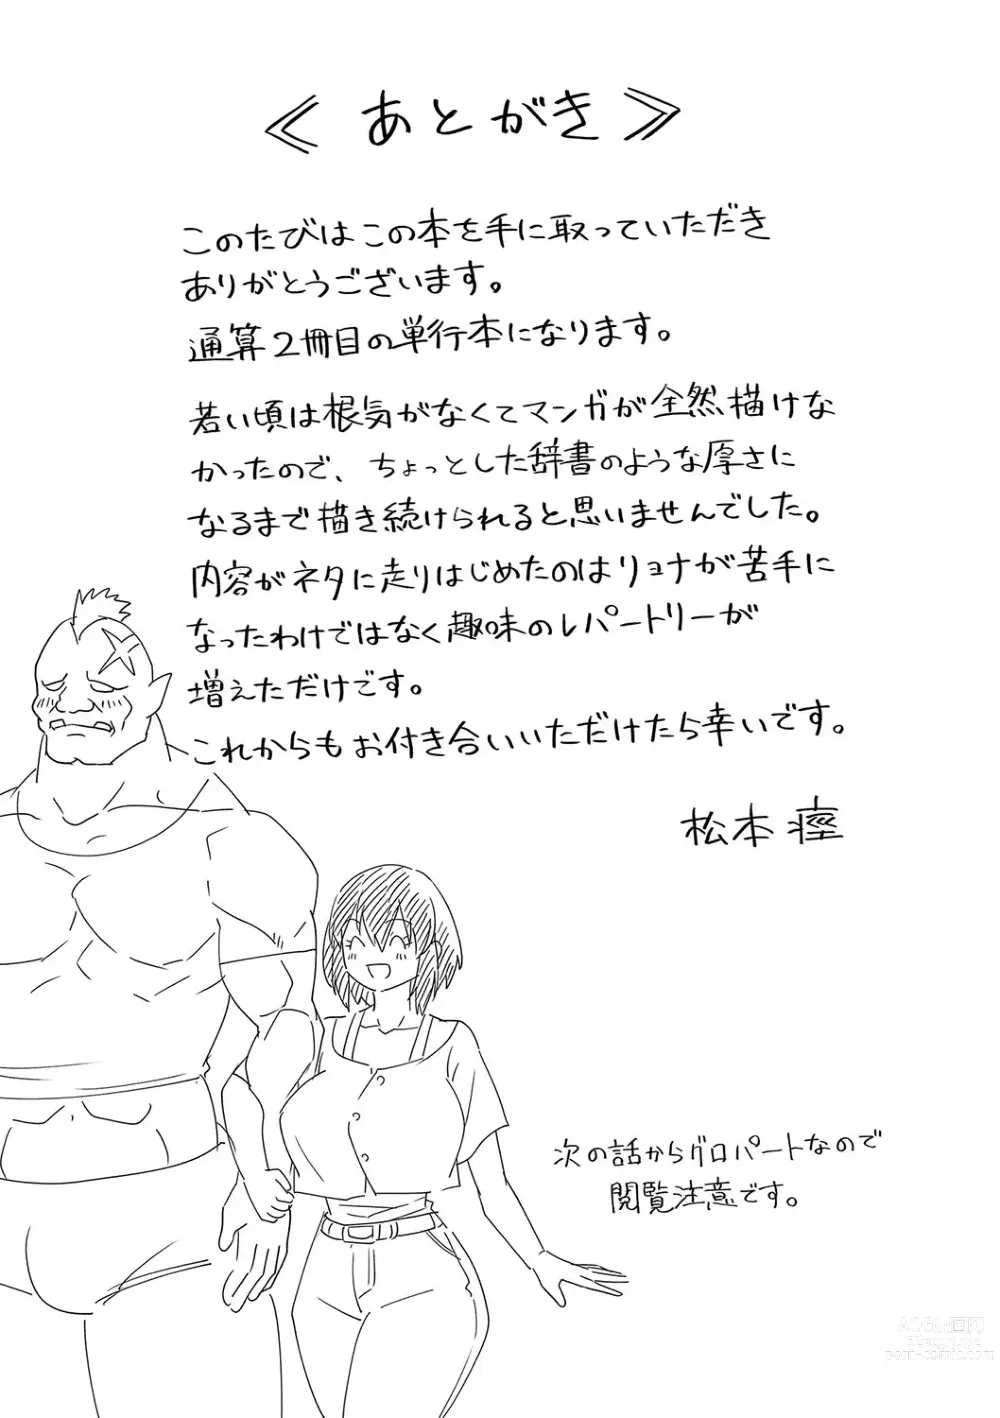 ≪ あとがき ≫
このたびはこの本を手に取っていただき
ありがとうございます。
通算2冊目の単行本になります。
若い頃は根気がなくてマンガが全然描けな
かったので、ちょっとした辞書のような厚さに
なるまで描き続けられると思いませんでした。
内容がネタに走りはじめたのはリョナが苦手に
なったわけではなく趣味のレパートリーが
増えただけです。
これからもお付き合いいただけたら幸いです。
松本痙
次の話からグロパートなので
閲覧注意です。
porn-comic.com